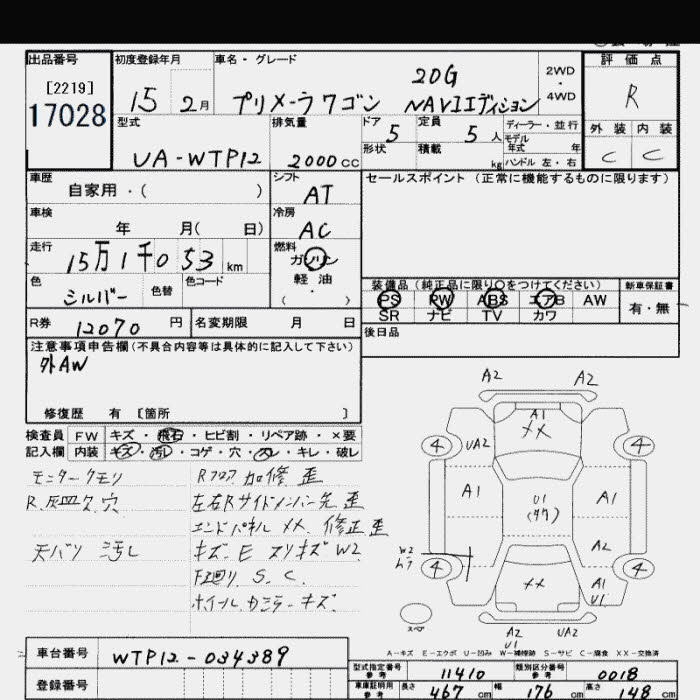 出品番号
[2219]
17028
初度登録年月
15 2月
車名・グレード
20G
プリメーラワゴン NAVIエディション
2WD
・
4WD
評価点
R
外装 内装
C C
型式
UA-WTP12
排気量
2000cc
ドア 5
定員 5人
形状
積載 kg
ディーラー・並行
モデル年式 年
ハンドル 左・右
車歴
自家用・( )
シフト
AT
セールスポイント(正常に機能するものに限ります)
車検
年 月( 日)
冷房
AC
走行
15万1千053km
燃料
ガソリン
軽油
( ・ )
色
シルバー
色替
色コード
装備品(純正品に限り○をつけてください)
PS PW ABS エアB AW
SR ナビ TV カワ
新車保証書
有・無
R券 12070 円
名変期限 月 日
後日品
注意事項申告欄(不具合内容等は具体的に記入して下さい)
外AW
修復歴 有 [箇所 ]
検査員記入欄
FW キズ・飛石・ヒビ割・リペア跡・×要
内装 キズ・汚レ・コゲ・穴・スレ・キレ・破レ
モニタークモリ
Rフロア加修 歪
R.灰皿欠 穴
左右Rサイドメンバー先 歪
エンドパネル XX 修正歪
天バリ 汚レ
キズ.E スリキズ W2
下廻り S.C.
ホイールカミラーキズ
A2 A2
A1
XX
4 4
UA2
A1 A1
U1
A2
W2
4 4
XX
A1
U1
スペア
A2
U1
UA2
A−キズ E−エクボ U−凹み W−補修跡 S−サビ C−腐食 XX−交換済
車台番号 WTP12-034389
登録番号
型式指定番号 参考 11410
類別区分番号 参考 0018
車庫証明用 参考 長さ 467 cm 幅 176 cm 高さ 148 cm